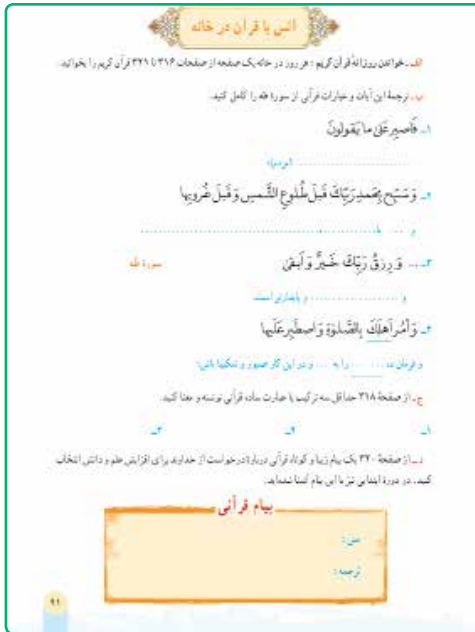 انس با قرآن در خانه
الف ـ خواندن روزانهٔ قرآن کریم : هر روز در خانه یک صفحه از صفحات ۳۱۶ تا ۳۲۱ قرآن کریم را بخوانید.
ب ـ ترجمهٔ این آیات و عبارات قرآنی از سورهٔ طه را کامل کنید.
۱ـ فَاصبِر عَلىٰ ما يَقولونَ
.................... (مردم)
۲ـ وَ سَبِّح بِحَمدِ رَبِّكَ قَبلَ طُلوعِ الشَّمسِ وَ قَبلَ غُروبِها
و .... با ....................
۳ـ ... وَ رِزقُ رَبِّكَ خَيرٌ وَ أَبقىٰ سورهٔ طه
و .................... و پایدارتر است.
۴ـ وَ أمُر أَهلَكَ بِالصَّلوٰةِ وَ اصطَبِر عَلَيها
و فرمان بده ........ را به .... و در این کار صبور و شکیبا باش؛
ج ـ از صفحهٔ ۳۱۸ حداقل سه ترکیب یا عبارت ساده قرآنی نوشته و معنا کنید.
۱ـ ۲ـ ۳ـ
د ـ از صفحهٔ ۳۲۰ یک پیام زیبا و کوتاه قرآنی دربارهٔ درخواست از خداوند برای افزایش علم و دانش انتخاب
کنید. در دورهٔ ابتدایی نیز با این پیام آشنا شده‌اید.
پیام قرآنی
متن :
ترجمه :
۹۱